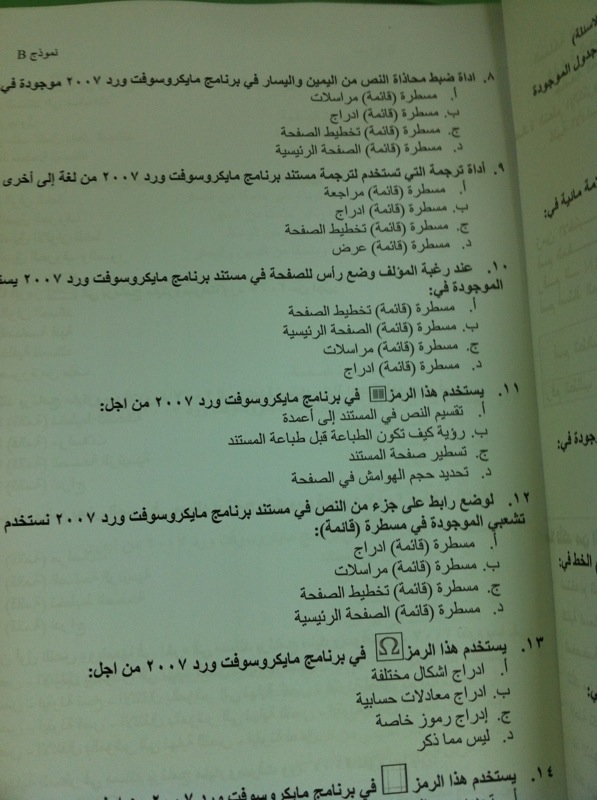 نموذج B
٨. اداة ضبط محاذاة النص من اليمين واليسار في برنامج مايكروسوفت ورد ٢٠٠٧ موجودة في
أ. مسطرة (قائمة) مراسلات
ب. مسطرة (قائمة) ادراج
ج. مسطرة (قائمة) تخطيط الصفحة
د. مسطرة (قائمة) الصفحة الرئيسية
٩. أداة ترجمة التي تستخدم لترجمة مستند برنامج مايكروسوفت ورد ٢٠٠٧ من لغة إلى أخرى
أ. مسطرة (قائمة) مراجعة
ب. مسطرة (قائمة) ادراج
ج. مسطرة (قائمة) تخطيط الصفحة
د. مسطرة (قائمة) عرض
١٠. عند رغبة المؤلف وضع رأس للصفحة في مستند برنامج مايكروسوفت ورد ٢٠٠٧
الموجودة في:
أ. مسطرة (قائمة) تخطيط الصفحة
ب. مسطرة (قائمة) الصفحة الرئيسية
ج. مسطرة (قائمة) مراسلات
د. مسطرة (قائمة) ادراج
١١. يستخدم هذا الرمز في برنامج مايكروسوفت ورد ٢٠٠٧ من اجل:
أ. تقسيم النص في المستند إلى أعمدة
ب. رؤية كيف تكون الطباعة قبل طباعة المستند
ج. تسطير صفحة المستند
د. تحديد حجم الهوامش في الصفحة
١٢. لوضع رابط على جزء من النص في مستند برنامج مايكروسوفت ورد ٢٠٠٧ نستخدم
تشعبي الموجودة في مسطرة (قائمة):
أ. مسطرة (قائمة) ادراج
ب. مسطرة (قائمة) مراسلات
ج. مسطرة (قائمة) تخطيط الصفحة
د. مسطرة (قائمة) الصفحة الرئيسية
١٣. يستخدم هذا الرمز Ω في برنامج مايكروسوفت ورد ٢٠٠٧ من اجل:
أ. ادراج اشكال مختلفة
ب. ادراج معادلات حسابية
ج. إدراج رموز خاصة
د. ليس مما ذكر
١٤. يستخدم هذا الرمز في برنامج مايكروسوفت ورد
جدول الموجودة
مانية في:
جودة في:
الخط في: